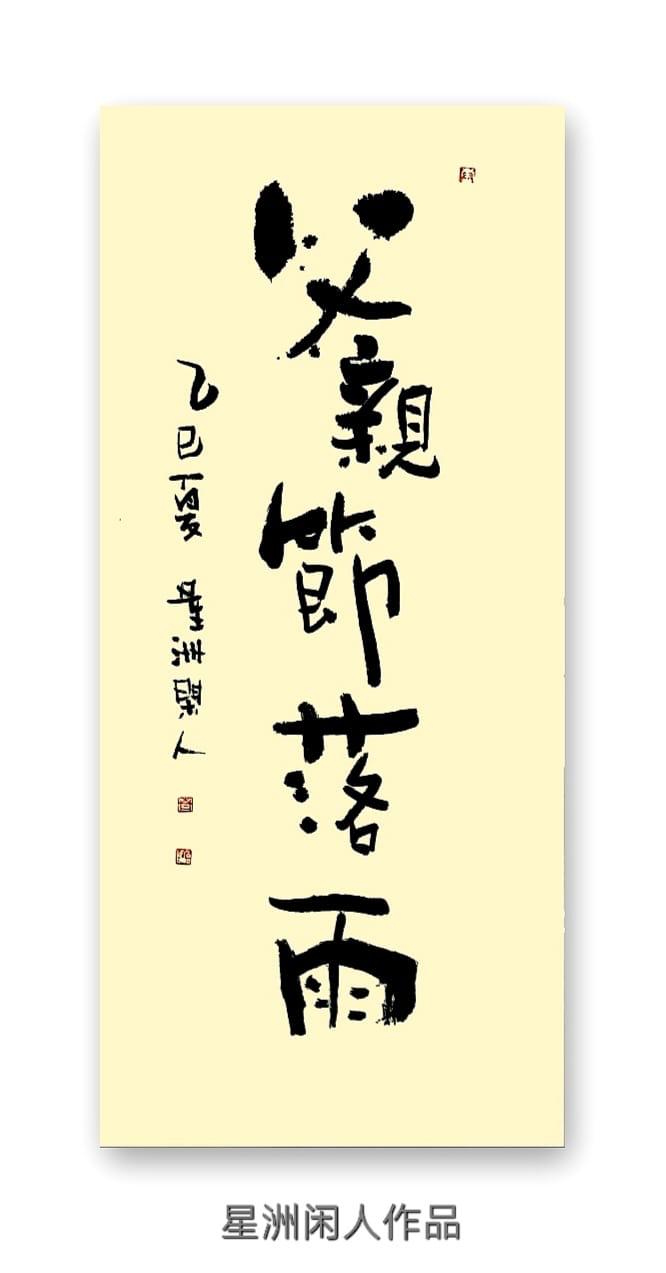 父親節落雨
乙巳夏 星洲閑人
星洲闲人作品